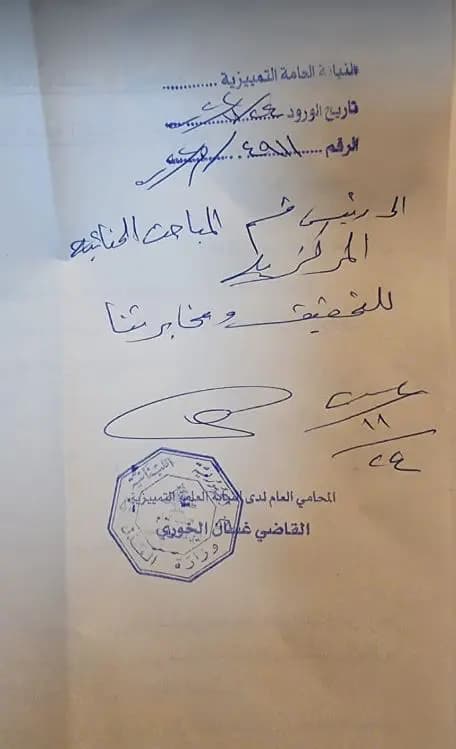 النيابة العامة التمييزية
تاريخ الورود
الرقم
الى رئيس قسم المباحث الجنائية
المركزية
للتحقيق ومخابرتنا
١١
٢٤
المحامي العام لدى النيابة العامة التمييزية
القاضي غسان الخوري
وزارة العدل